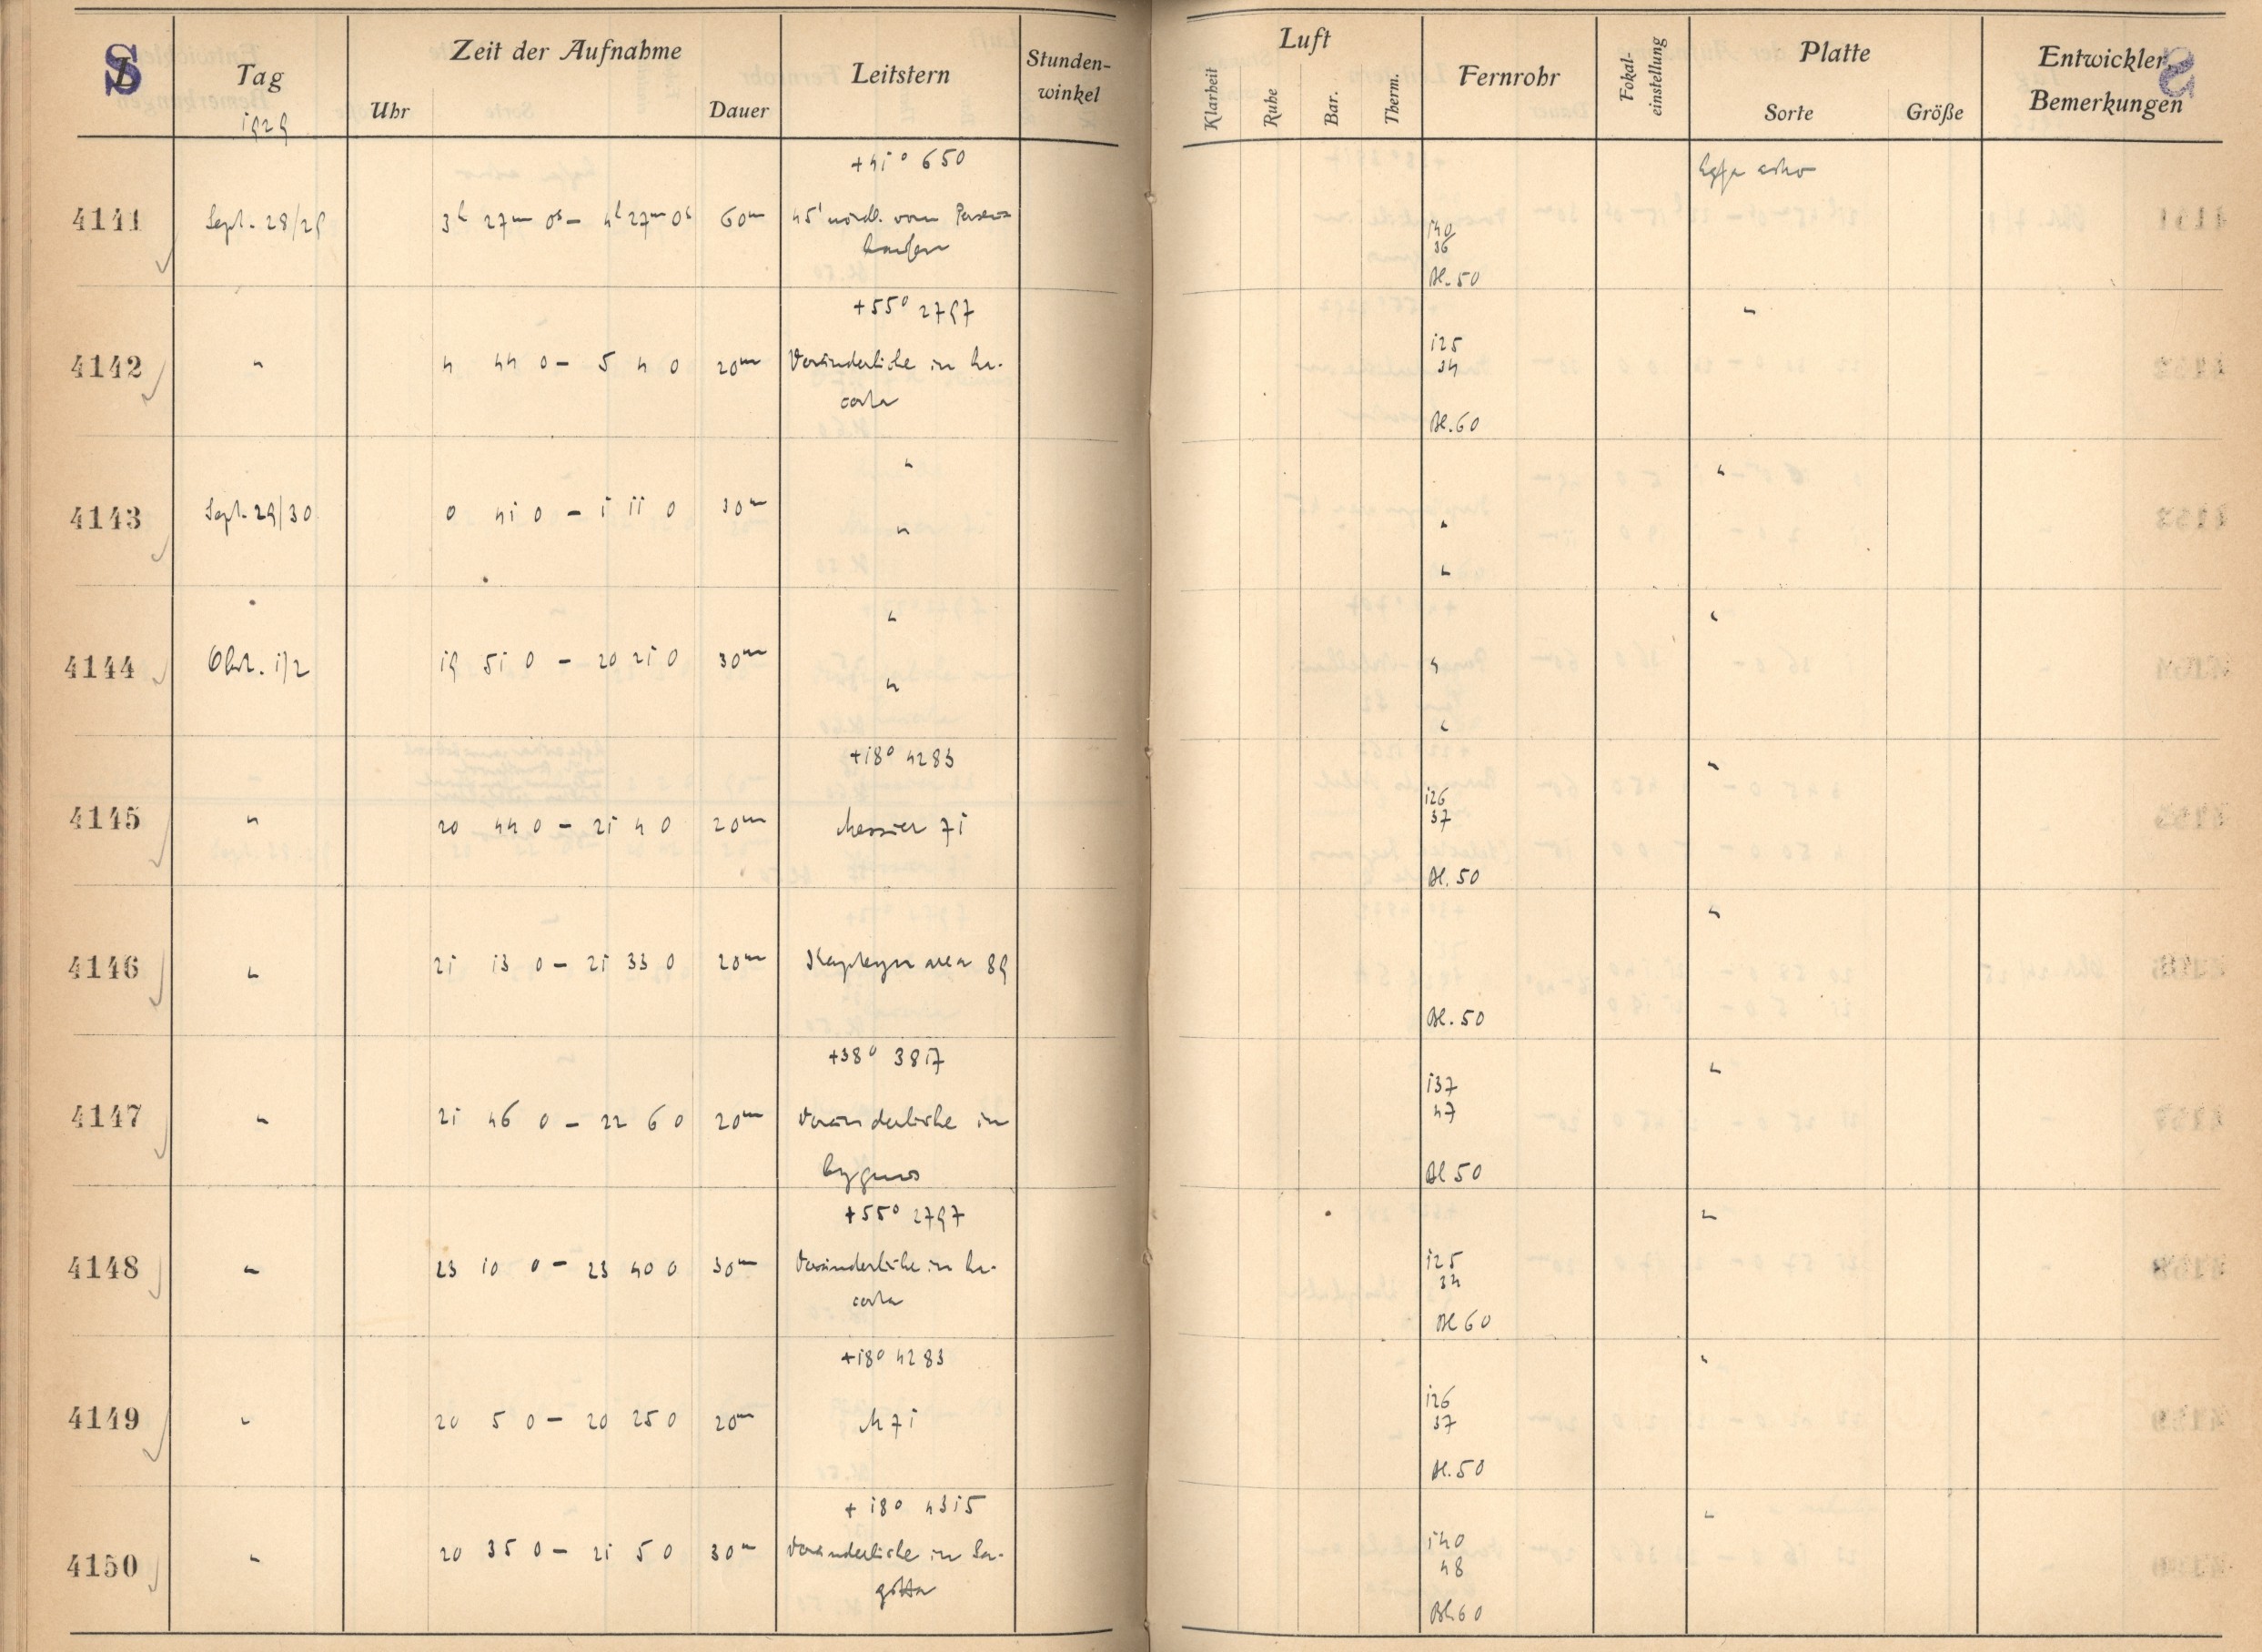 S
Tag
1929
Zeit der Aufnahme
Uhr
Dauer
Leitstern
Stunden-
winkel
Luft
Klarheit
Ruhe
Bar.
Therm.
Fernrohr
Fokal-
einstellung
Platte
Sorte
Größe
Entwickler,
Bemerkungen
S
+41° 650
Agfa astro
4141 Sept. 28/29 3h 27m 0s – 4h 27m 0s 60m 45' nördl. vom Perseus-
haufen
140
36
Bl. 50
+55° 2797 "
4142 " 4 44 0 – 5 4 0 20m Veränderliche in La-
certa
125
34
Bl. 60
" "
4143 Sept. 29/30 0 41 0 – 1 11 0 30m " "
"
" "
4144 Okt. 1/2 19 51 0 – 20 21 0 30m " "
"
+18° 4283 "
4145 " 20 44 0 – 21 4 0 20m Messier 71
126
37
Bl. 50
"
4146 " 21 13 0 – 21 33 0 20m Kapteyn area 89
Bl. 50
+38° 3817 "
4147 " 21 46 0 – 22 6 0 20m Veränderliche in
Cygnus
137
47
Bl 50
+55° 2797 "
4148 " 23 10 0 – 23 40 0 30m Veränderliche in La-
certa
125
34
Bl 60
+18° 4283 "
4149 " 20 5 0 – 20 25 0 20m M 71
126
37
Bl. 50
+18° 4315 "
4150 " 20 35 0 – 21 5 0 30m Veränderliche in Sa-
gitta
140
48
Bl. 60